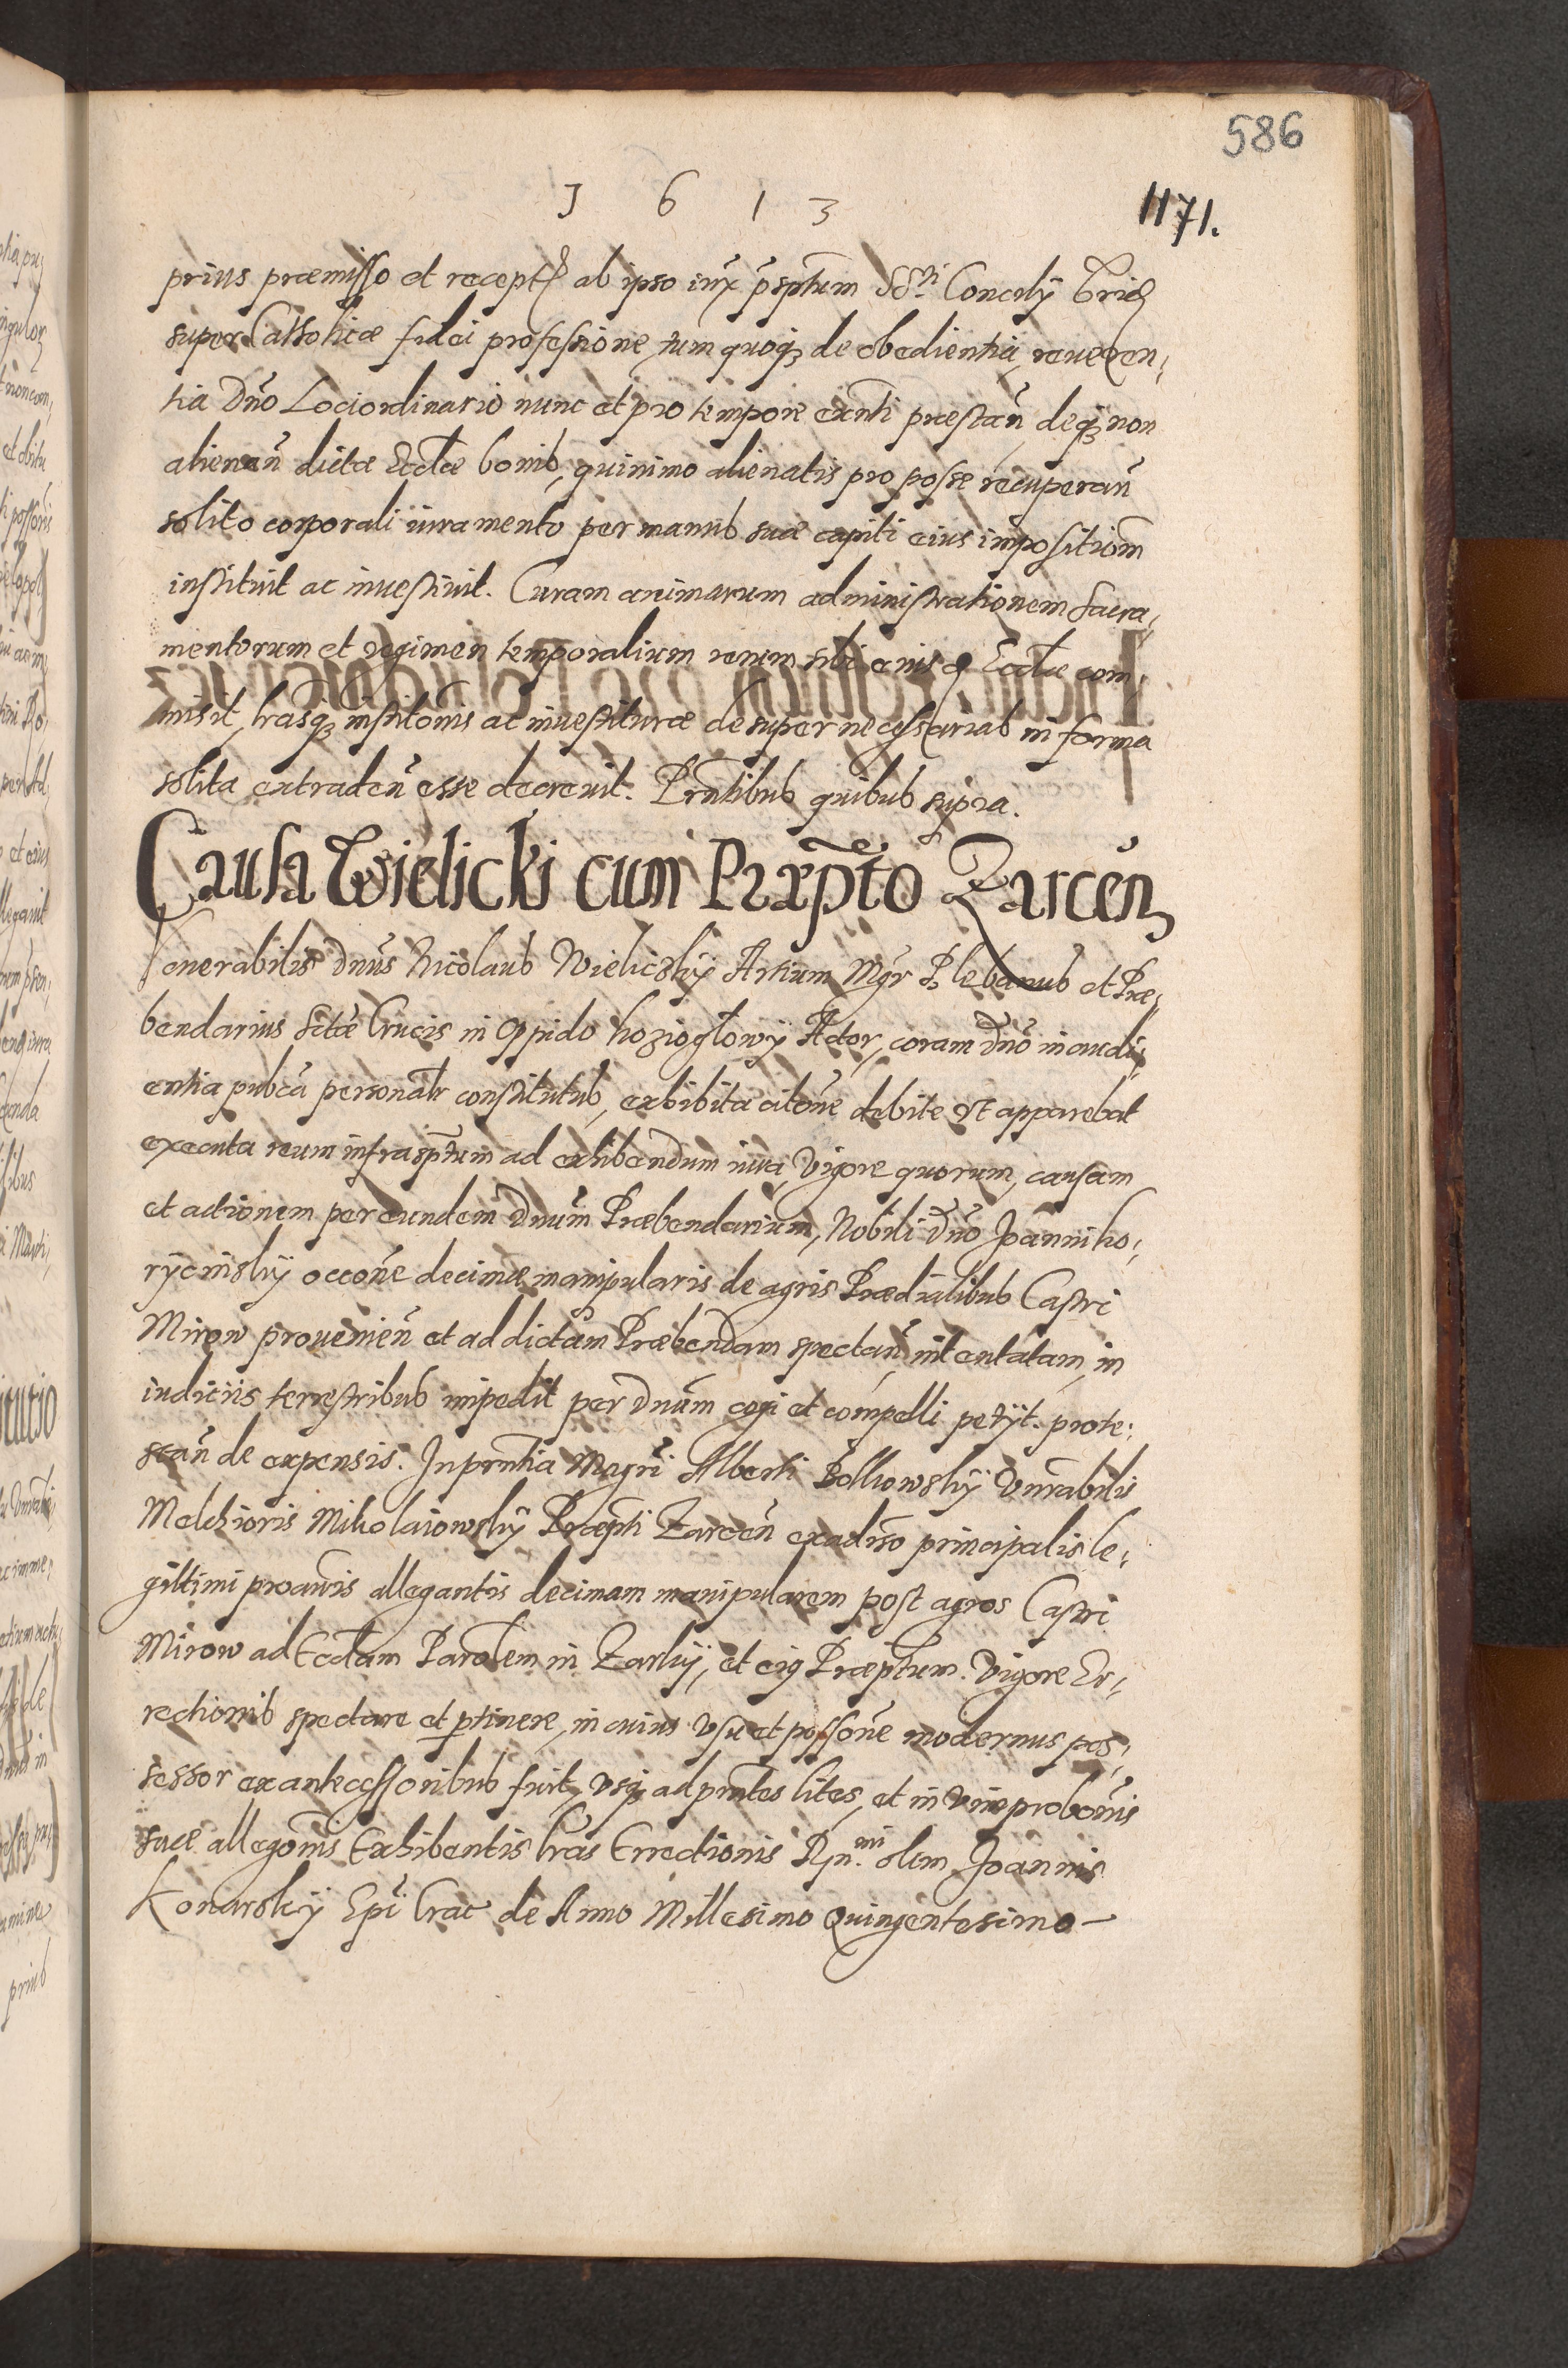 586
1 6 1 3
1171.
prius præmisso et recept ab ipso iux p̃sptum S̃S.ti Concily Trid
super Catholicæ fidei professione, tum quoq; de obedientia, reueren,
tia Dño Lociordinario nunc et pro tempore exñti præstañ, deq; non
alienañ dictæ Eccłæ bonis, quinimo alienatis pro posse recuperañ
solito corporali iuramento per manus suæ capiti eius impositiom̃
instituit ac inuestiuit. Curam animarum administrationem Sacra,
mentorum et regimen temporalium rerum sibi eiusq Eccłæ com,
misit, l̃rasq; institõnis ac inuestituræ desuper necessarias in forma
solita extradeñ esse decreuit. Prñtibus quibus supra.
Causa Wielicki cum Præp̃to Zarceñ
Venerabilis Dñus Nicolaus Wielicskÿ Artium Mg̃r Plebanus et Præ,
bendarius Sctæ Crucis in Oppido Koziogłowÿ Actor, coram Dño in audi,
entia pubca personalr constitutus, exhibita citõne debite vt apparebat
executa reum infrasp̃tum ad exhibendum iura, Vigore quorum, causam
et actionem per eundem Dñum Præbendarium, Nobili Dño Joanni Ko,
rÿcinskÿ occõne decimæ manipularis de agris Prædialibus Castri
Mirow proueniẽn et ad dictam Præbendam spectañ intentatam, in
iudiciis terrestribus impedit per Dñum cogi et compelli petÿt. prote,
stañ de expensis. In prñtia Magri Alberti Bolkowskÿ Vnrabilis
Melchioris Mikolaiowskÿ Præpti Zarceñ ex adũso principalis le,
gittimi procuris allegantis decimam manipularem post agros Castri
Mirow ad Eccłam Parołem in Zarkÿ, et eiq Præptum. Vigore Er,
rectionis spectare et ptinere, in cuius Vsu et possõne modernus pos,
sessor ex antecessoribus fuit, vsq; ad prñtes lites, et in vim probõnis
suæ allegõnis Exhibentis l̃ras Errectionis Rñ.mi olim Joannis
Konarskÿ Epĩ Crac de Anno Millesimo Quingentesimo —